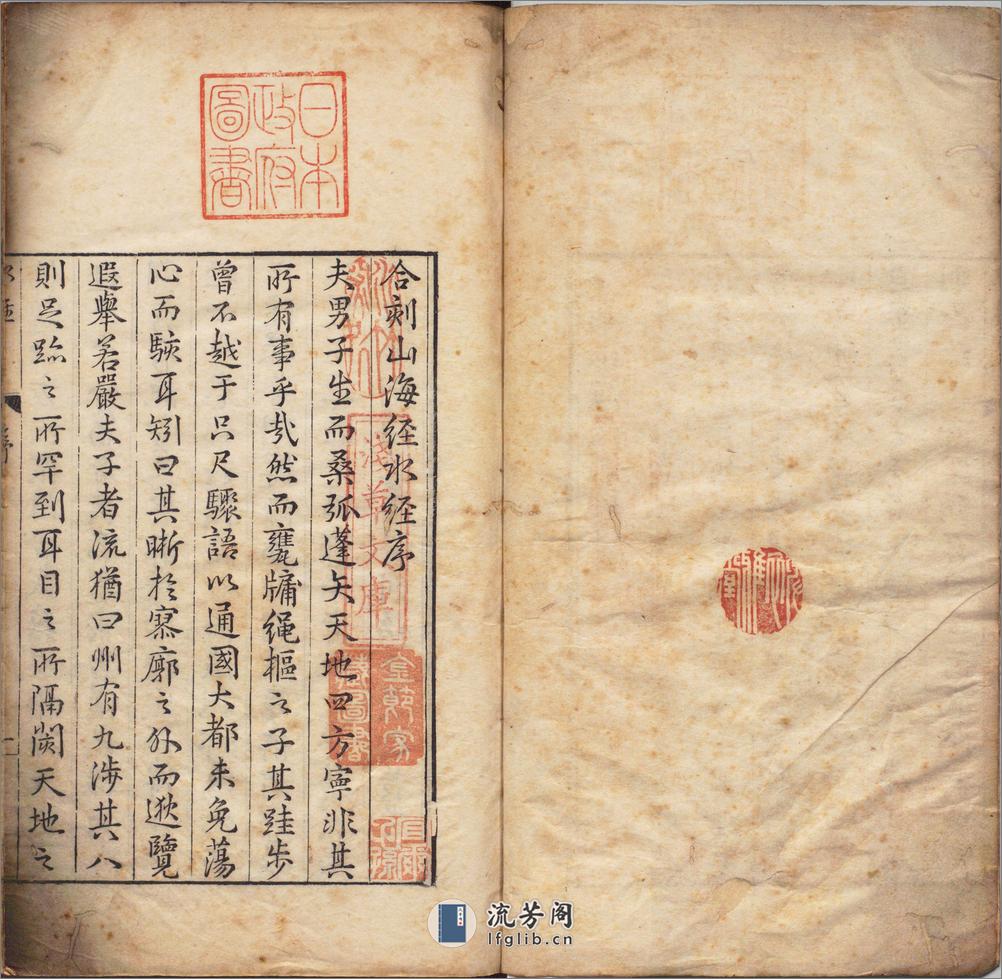 合刻山海経水経序
夫男子生而桑弧蓬矢天地四方寧非其
所有事乎哉然而甕牖绳樞之子其跬步
曾不越于咫尺驟語以通國大都未免蕩
心而駭耳矧曰其晰於寥廓之外而逖覽
遐舉若嚴夫子者流猶曰州有九涉其八
則足跡之所罕到耳目之所隔閡天地之
序
一
日本
政府
圖書
淺草文庫
流芳阁
lfglib.cn